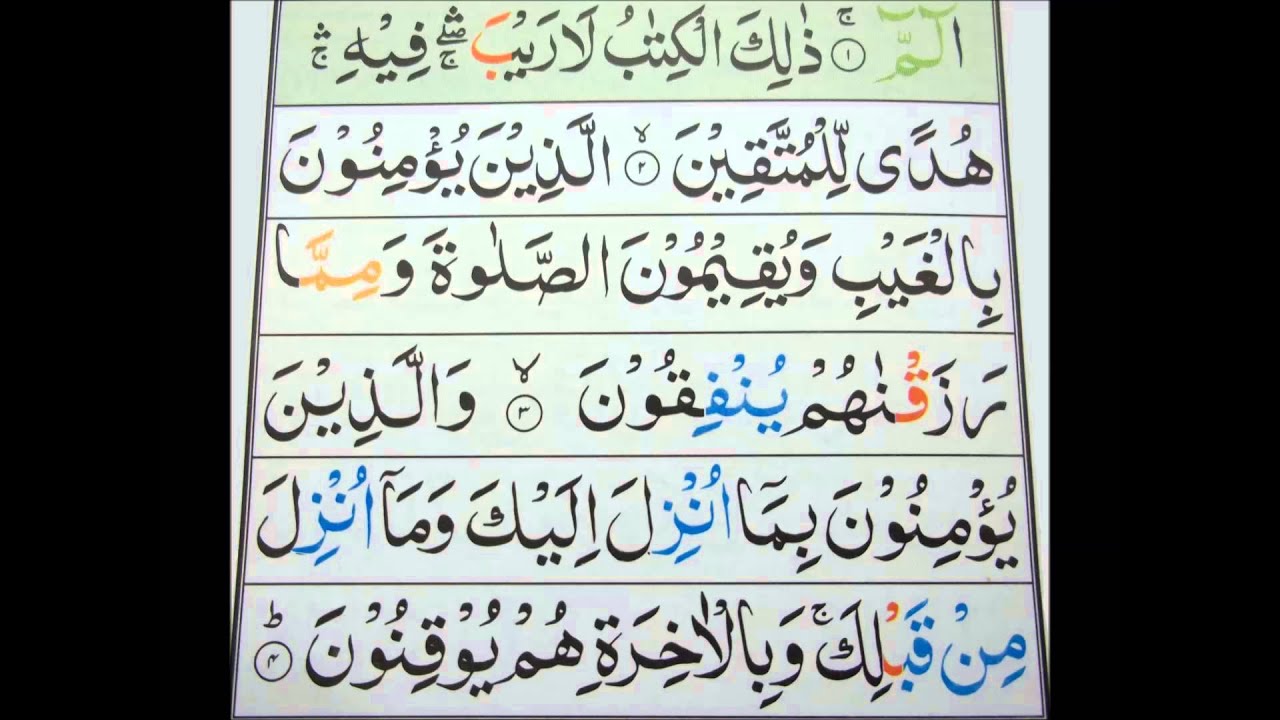 الٓمّٓ ۚ﴿۱﴾ ذٰلِكَ الْكِتٰبُ لَا رَيْبَ ۛۖۚ فِيْهِ ۛۚ
هُدًى لِّلْمُتَّقِيْنَ ۙ﴿۲﴾ الَّذِيْنَ يُؤْمِنُوْنَ
بِالْغَيْبِ وَيُقِيْمُوْنَ الصَّلٰوةَ وَمِمَّا
رَزَقْنٰهُمْ يُنْفِقُوْنَ ۙ﴿۳﴾ وَالَّذِيْنَ
يُؤْمِنُوْنَ بِمَآ اُنْزِلَ اِلَيْكَ وَمَآ اُنْزِلَ
مِنْ قَبْلِكَ ۚ وَبِالْاٰخِرَةِ هُمْ يُوْقِنُوْنَ ؕ﴿۴﴾